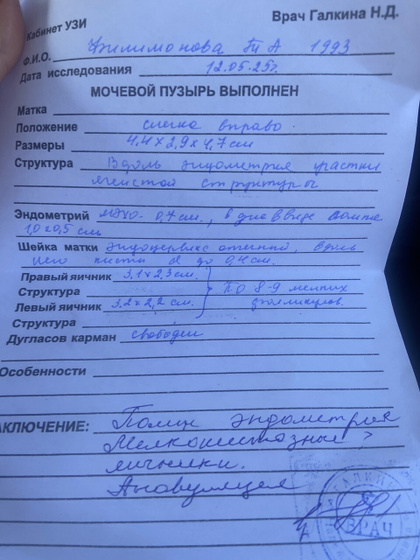 Кабинет УЗИ Врач Галкина Н.Д.
Ф.И.О. Филимонова Т А 1993
Дата исследования 12.05.25г.
МОЧЕВОЙ ПУЗЫРЬ ВЫПОЛНЕН
Матка
Положение слегка вправо.
Размеры 4,4 x 2,9 x 4,7 см
Структура Вдоль эндометрия участки
ячеистой структуры
Эндометрий М-эхо - 0,7 см., в дне в виде
1,0 x 0,5 см
Шейка матки эндоцервикс, вдоль
него кисты d до 0,4 см.
Правый яичник 3.1 x 2,3 см.
Структура по 8-9 мелких
Левый яичник 3.2 x 2,2 см. фолликулов.
Структура
Дугласов карман свободен
Особенности
АКЛЮЧЕНИЕ: Полип эндометрия
Мелкокистозные ?
яичники.
Ановуляция
ВРАЧ